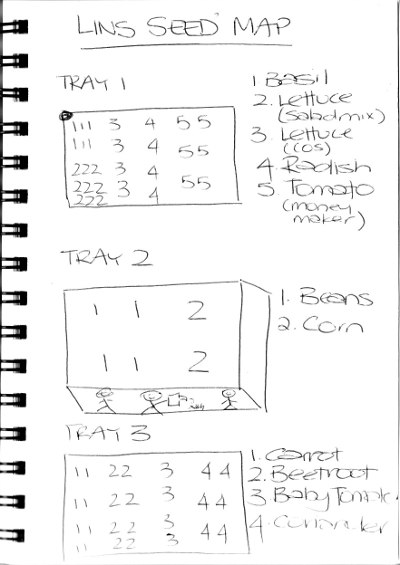 LINS SEED MAP
TRAY 1
111 3 4 55
111 3 4 55
222 3 4
222 3 4 55
222
1 Basil
2. Lettuce
(saladmix)
3 Lettuce
(cos)
4. Radish
5. Tomato
(money
maker)
TRAY 2
1 1 2
1 1 2
1. Beans
2. Corn
TRAY 3
11 22 3 44
11 22 3 44
11 22 3 44
11 22 3
1. Carrot
2. Beetroot
3 Baby Tomato
4.